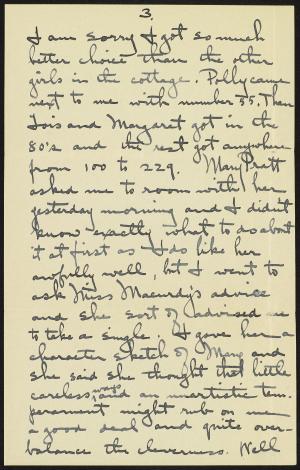 3.
I am sorry I got so much
better choice than the other
girls in the cottage. Polly came
next to me with number 55. Then
Lois and Margaret got in the
80's and the rest got anywhere
from 100 to 229. Mary Pratt
asked me to room with her
yesterday morning and I didn't
know exactly what to do about
it at first as I do like her
awfully well, but I went to
ask Miss Macurdy's advice
and she sort of advised me
to take a single. I gave her a
character sketch of Mary and
she said she thought that little
careless ways, and an inartistic tem-
perament might rub on me
a good deal and quite over-
balance the cleverness. Well